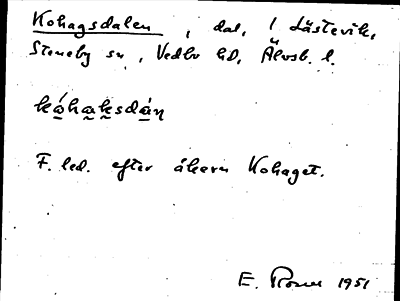 Kohagsdalen, dal, / Låstevik,
Steneby sn, Vedbo hd, Älvsb. l.
kóhaksdán
F. led. efter åkern Kohaget.
E. 1951